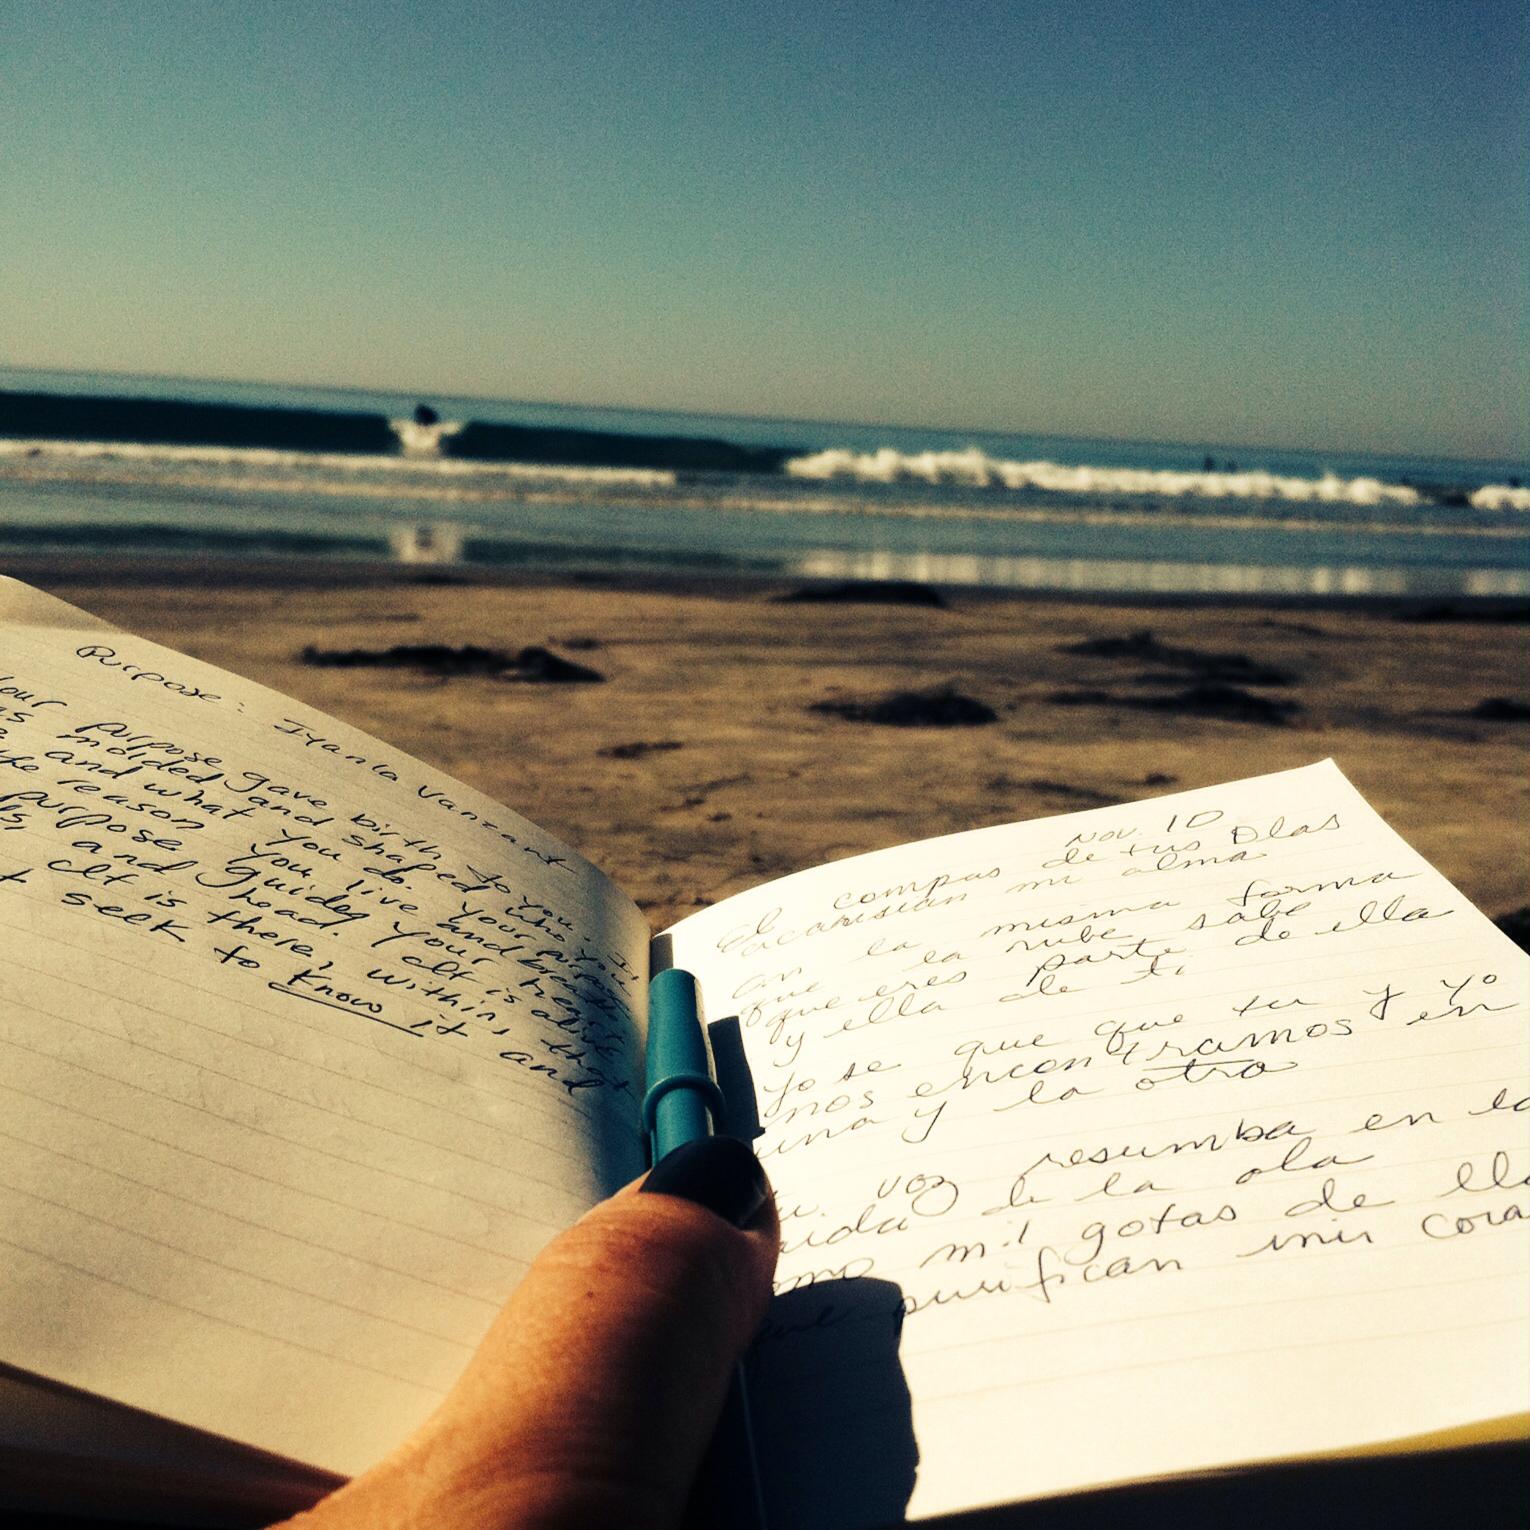 Purpose: Iyanla Vanzant
your purpose gave birth to you. It
as molded and shaped who you
and what you do.
reason you live and breath.
purpose guided your heart
and head. It is alive
It is there, within, that
seek to know it and
Nov. 10
El compas de tus Olas
acarisian mi alma
an la misma forma
que la nube sabe
que eres parte de ella
y ella de ti
yo se que que tu y yo
nos encontramos en
una y la otra
voz resumba en la
de la ola
mil gotas de
que purifican mi